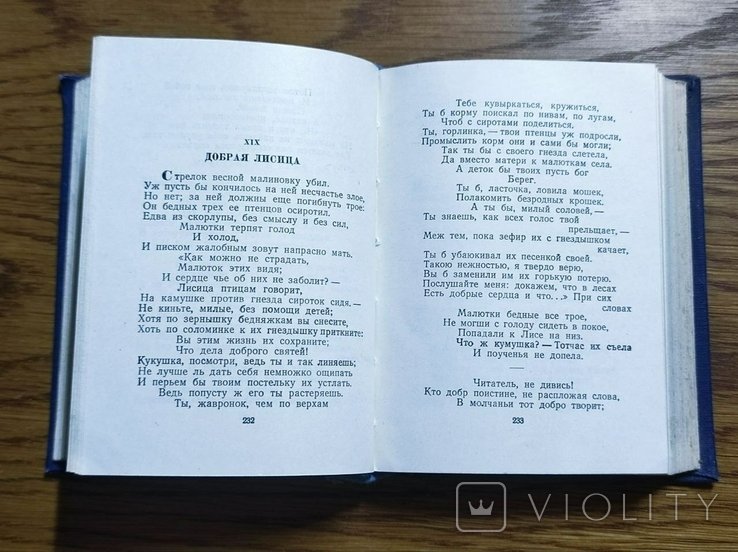 XIX
ДОБРАЯ ЛИСИЦА
Стрелок весной малиновку убил.
Уж пусть бы кончилось на ней несчастье злое,
Но нет; за ней должны еще погибнуть трое:
Он бедных трех ее птенцов осиротил.
Едва из скорлупы, без смыслу и без сил,
Малютки терпят голод
И холод,
И писком жалобным зовут напрасно мать.
«Как можно не страдать,
Малюток этих видя;
И сердце чье об них не заболит? —
Лисица птицам говорит,
На камушке против гнезда сироток сидя.—
Не киньте, милые, без помощи детей;
Хотя по зернышку бедняжкам вы снесите,
Хоть по соломинке к их гнездышку приткните:
Вы этим жизнь их сохраните;
Что дела доброго святей!
Кукушка, посмотри, ведь ты и так линяешь;
Не лучше ль дать себя немножко ощипать
И перьем бы твоим постельку их устлать.
Ведь попусту ж его ты растеряешь.
Ты, жавронок, чем по верхам
232
Тебе кувыркаться, кружиться,
Ты б корму поискал по нивам, по лугам,
Чтоб с сиротами поделиться.
Ты, горлинка, — твои птенцы уж подросли,
Промыслить корм они и сами бы могли;
Так ты бы с своего гнезда слетела,
Да вместо матери к малюткам села.
А деток бы твоих пусть бог
Берег.
Ты б, ласточка, ловила мошек,
Полакомить безродных крошек.
А ты бы, милый соловей,—
Ты знаешь, как всех голос твой
прельщает,—
Меж тем, пока зефир их с гнездышком
качает,
Ты б убаюкивал их песенкой своей.
Такою нежностью, я твердо верю,
Вы б заменили им их горькую потерю.
Послушайте меня: докажем, что в лесах
Есть добрые сердца и что...» При сих
словах
Малютки бедные все трое,
Не могши с голоду сидеть в покое,
Попадали к Лисе на низ.
Что ж кумушка? — Тотчас их съела
И поученья не допела.
Читатель, не дивись!
Кто добр поистине, не распложая слова,
В молчаньи тот добро творит;
233
VIOLITY